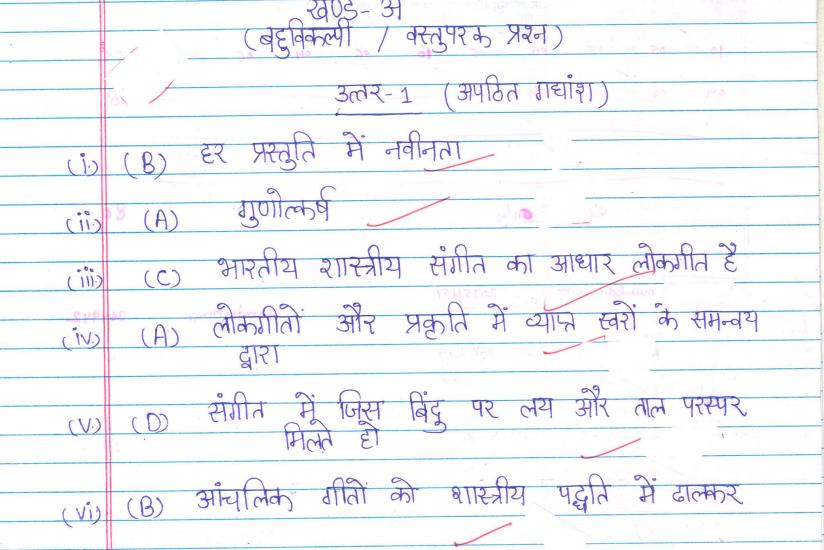 खण्ड-अ
(बहुविकल्पी / वस्तुपरक प्रश्न)
उत्तर-1 (अपठित गद्यांश)
(i) (B) हर प्रस्तुति में नवीनता
(ii) (A) गुणोत्कर्ष
(iii) (C) भारतीय शास्त्रीय संगीत का आधार लोकगीत है
(iv) (A) लोकगीतों और प्रकृति में व्याप्त स्वरों के समन्वय
द्वारा
(v) (D) संगीत में जिस बिंदु पर लय और ताल परस्पर
मिलते हो
(vi) (B) आंचलिक गीतों को शास्त्रीय पद्धति में ढालकर